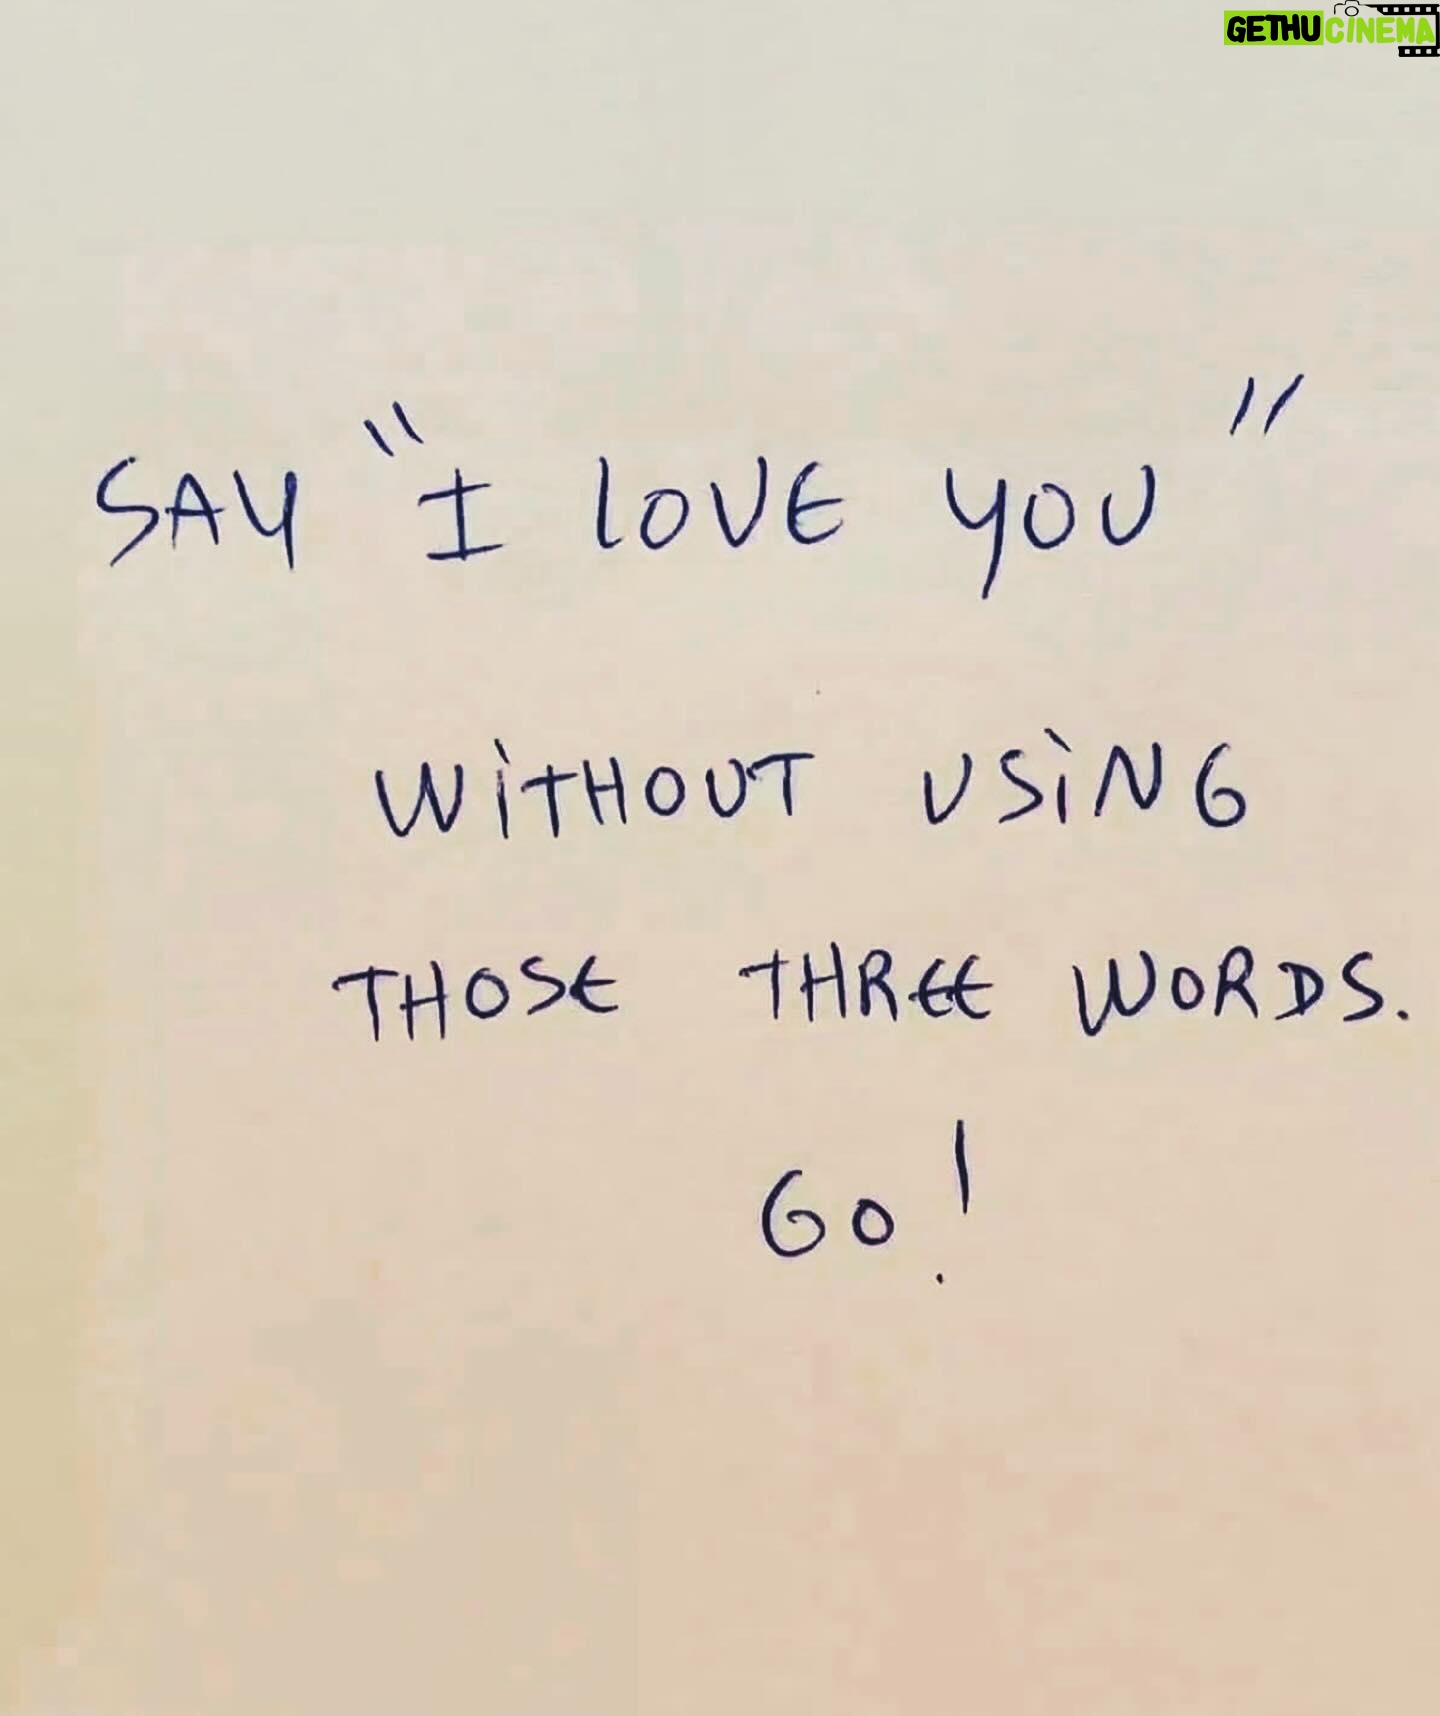 GETHUCINEMA
SAY "I LOVE YOU"
WITHOUT USING
THOSE THREE WORDS.
GO!